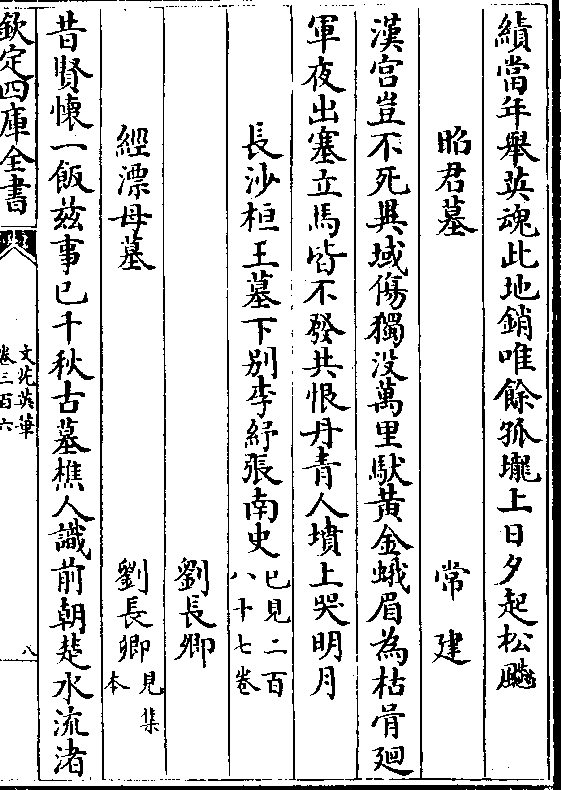 績當年舉英魂此地銷唯餘孤壠上日夕起松飈
昭君墓　常建
漢宫豈不死異域傷獨没萬里馱黃金蛾眉為枯骨廻
軍夜出塞立馬皆不發共恨丹青人墳上哭明月
長沙桓王墓下别李紓張南史已見二百八十七卷
劉長卿
經漂母墓　劉長卿見集本
昔賢懷一飯兹事已千秋古墓樵人識前朝楚水流渚
欽定四庫全書
文苑英華
卷三百六
八